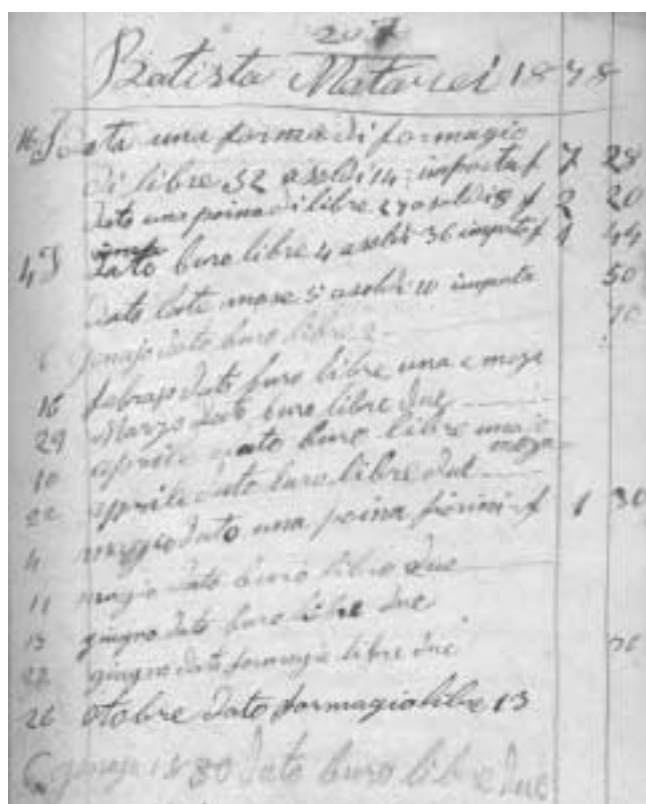 207
Batista 18
Data una forma di formagio
di libre 52 a soldi 14 importa f 7 28
dato una poina di libre 27 a soldi 8 f 2 20
dato buro libre 4 a soldi 36 importa f 1 44
dato late mose 5 a soldi 10 importa 50
6 genajo dato buro libre 2 70
16 febrajo dato buro libre una e meza
29 Marzo dato buro libre due
10 aprile dato buro libre una e
meza
22 aprile dato buro libre due
4 maggio dato una poina fiorini f 1 30
11 magio dato buro libre due
13 giugno dato buro libre due
22 giugno dato formagio libre due
26 otobre dato formagio libre 13
6 genajo 1880 dato buro libre due